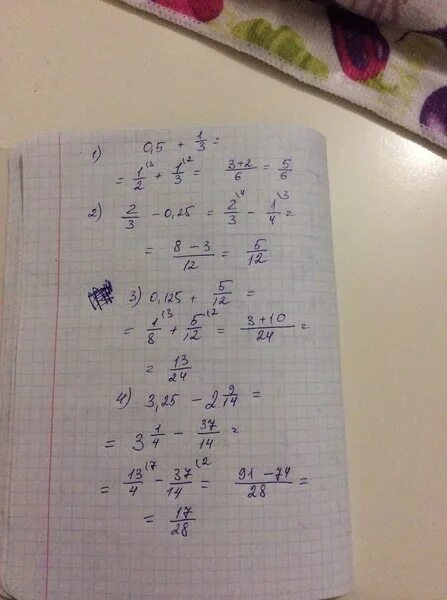 1) 0,5 + 1/3 =
= 1/2 \3 + 1/3 \2 = 3+2/6 = 5/6
2) 2/3 - 0,25 = 2/3 \4 - 1/4 \3 =
= 8-3/12 = 5/12
3) 0,125 + 5/12 =
= 1/8 \3 + 5/12 \2 = 3+10/24 =
= 13/24
4) 3,25 - 2 9/14 =
= 3 1/4 - 37/14 =
= 13/4 \7 - 37/14 \2 = 91-74/28 =
= 17/28